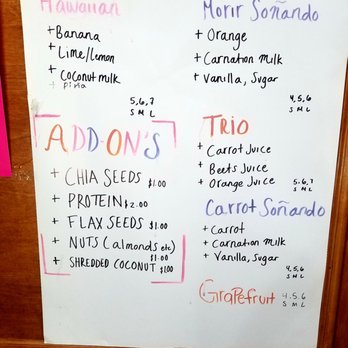 Hawaiian
+ Banana
+ Lime/lemon
+ Coconut milk
+ Piña
5,6,7
S M L
ADD-ON'S
+ CHIA SEEDS $1.00
+ PROTEIN $2.00
+ FLAX SEEDS $1.00
+ NUTS (almonds etc)
$1.00
+ SHREDDED COCONUT $1.00
Morir Soñando
+ Orange
+ Carnation Milk
+ Vanilla, Sugar
4,5,6
S M L
TRIO
+ Carrot Juice
+ Beets Juice
+ Orange Juice
5,6,7
S M L
Carrot Soñando
+ Carrot
+ Carnation Milk
+ Vanilla, Sugar
4,5,6
S M L
GRAPEfruit 4,5,6
S M L